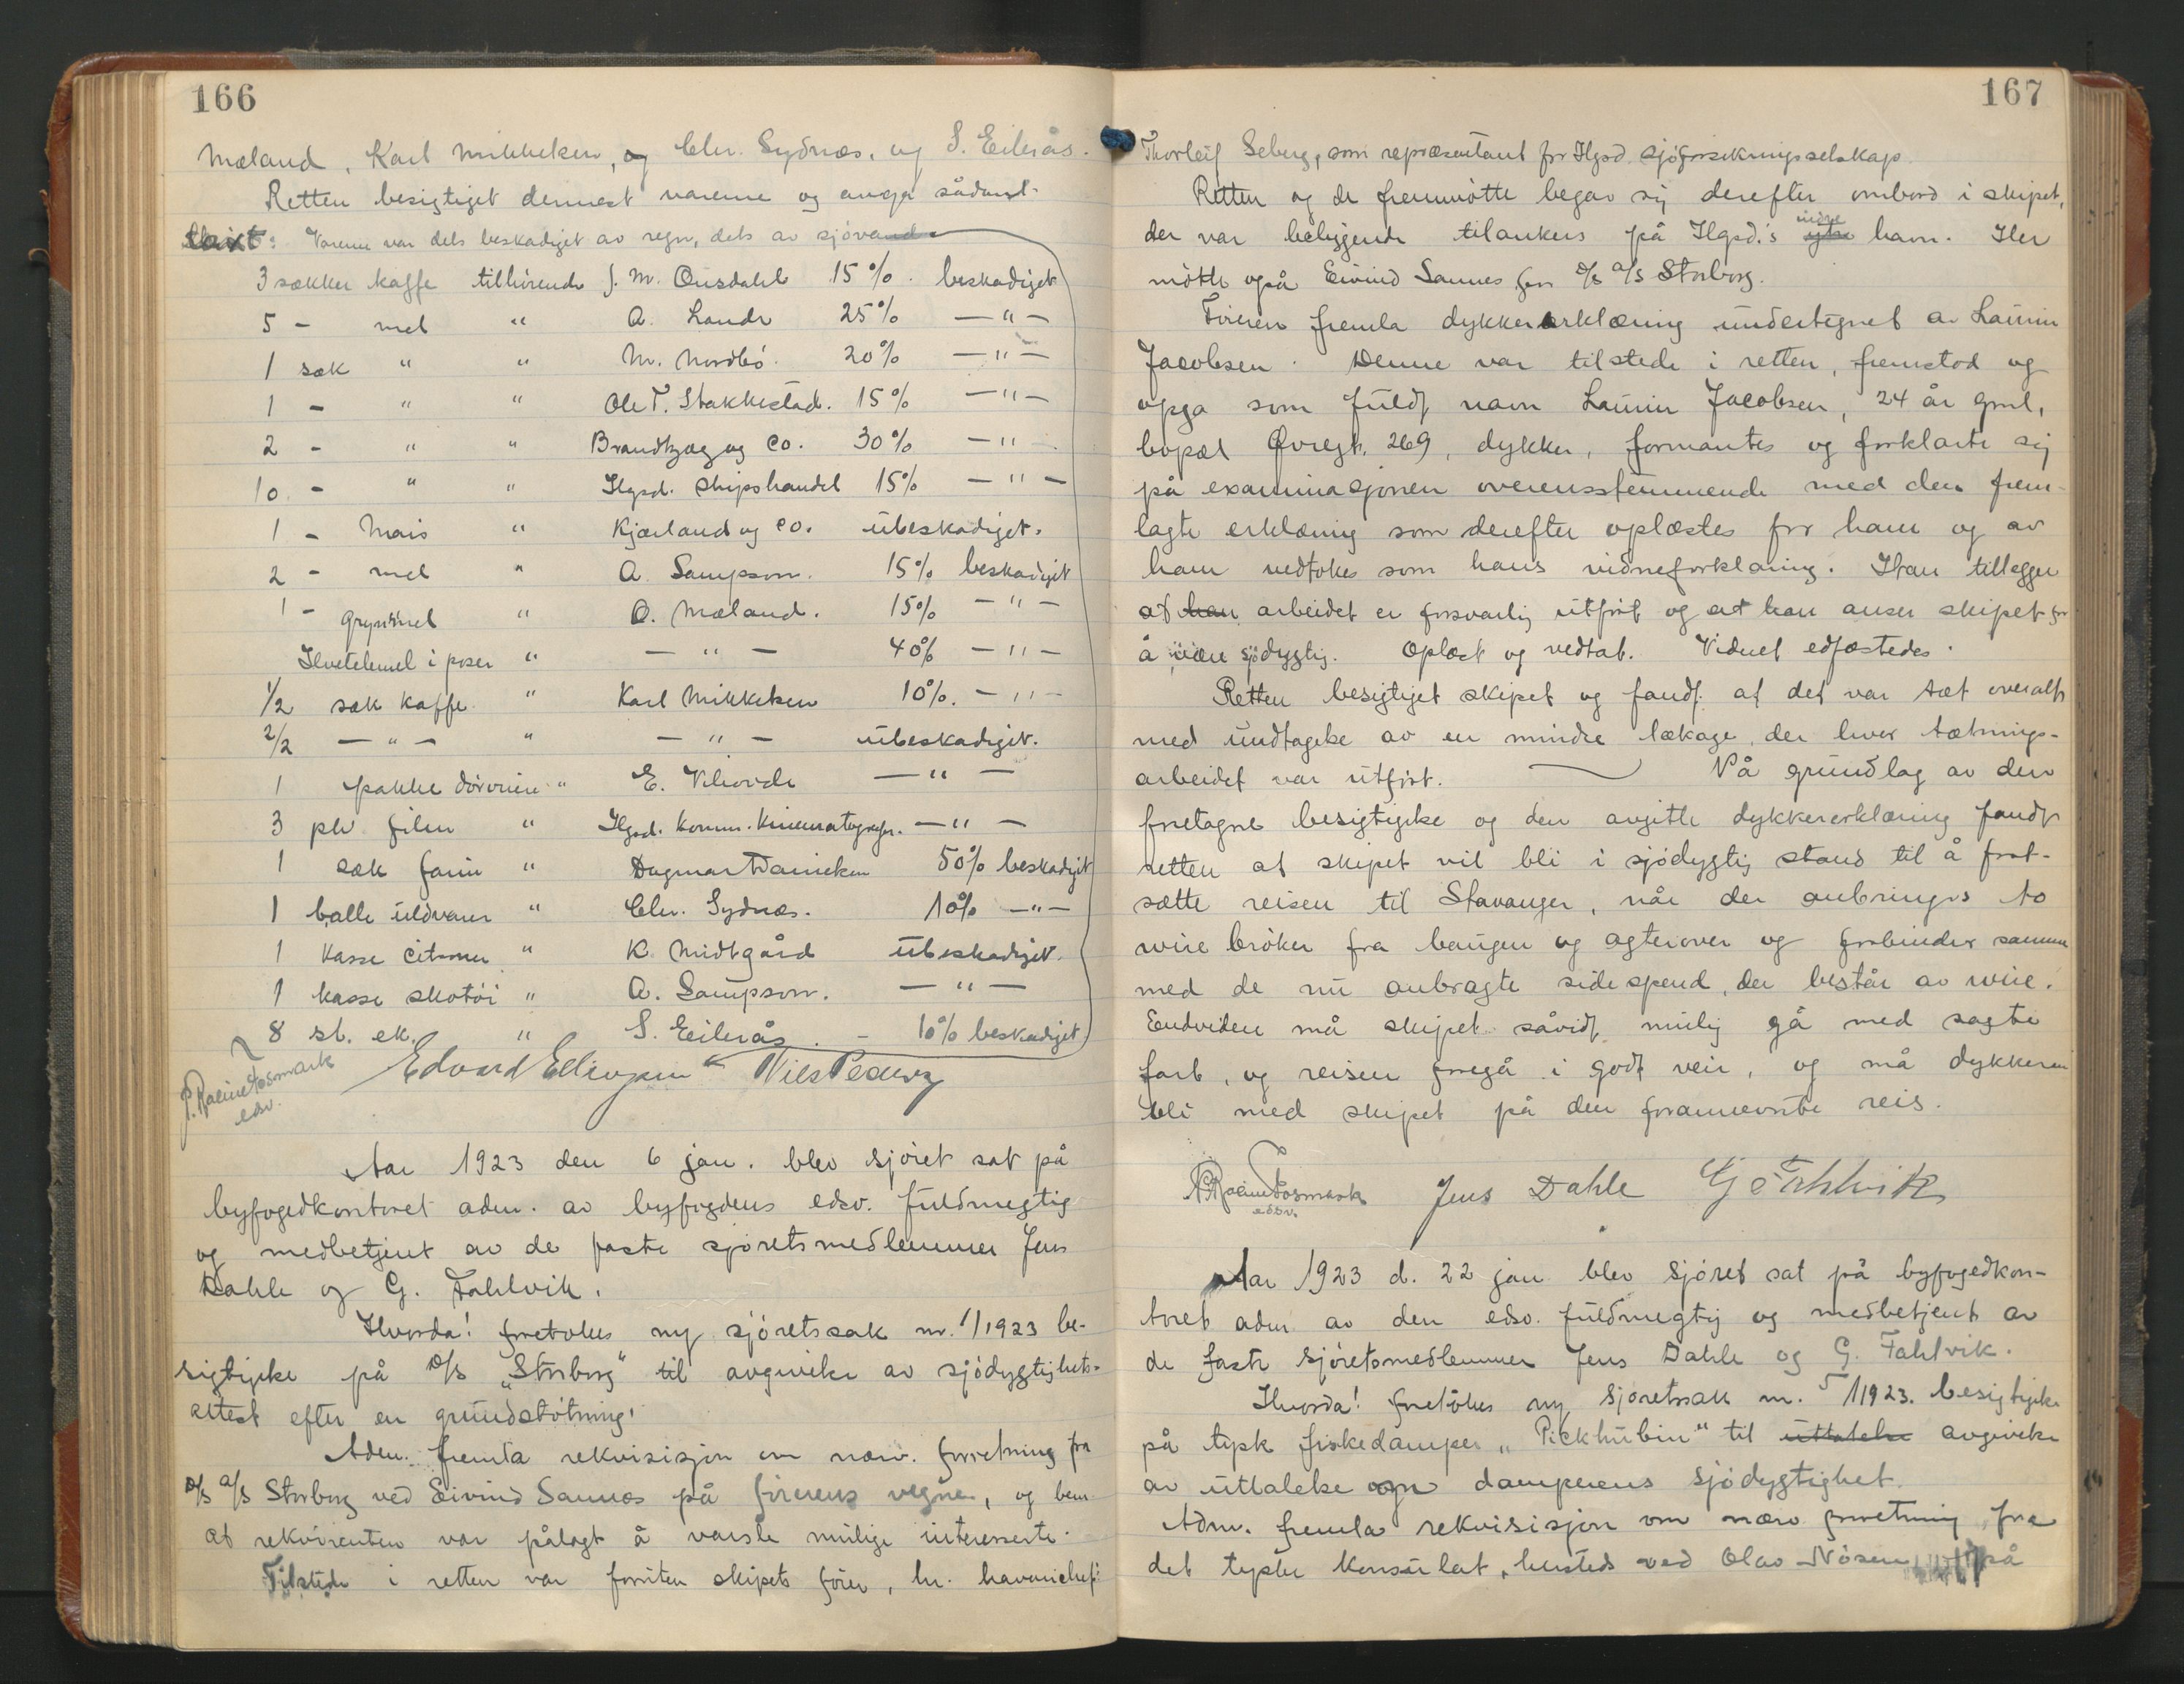 166
Mæland, Karl Mikkelsen, og Chr. Sydnæs, og S. Eilerås.
Retten besigtiget dernæst varerne og avga sådant
taxt: Varerne var dels beskadiget av regn, dels av sjøvand
3 sækker kaffe tilhørende J. M. Onsdahl 15% beskadiget
5 - mel " A. Lande 25% — " —
1 sæk " " M. Nordbø. 20% — " —
1 - " " Ole T. Stakkestad. 15% — " —
2 - " " Brandtzæg og Co. 30% — "
10 - " " Hgsd. Skipshandel 15% — " —
1 - Mais " Kjærland og Co. ubeskadiget.
2 - mel " A. Sampson. 15% beskadiget
1 - grynmel " O. Mæland. 15% — " —
Hvetemel i poser " — " — 40% — " —
1/2 sæk kaffe " Karl Mikkelsen 10%. — " —
2/2 — " — " — " — ubeskadiget.
1 pakke " E. — " —
3 pk film " Hgsd. komm. Kinematografer. — " —
1 sæk farin " Dagmar Danielsen 50% beskadiget
1 balle uldvarer " Chr. Sydnæs. 10% — " —
1 kasse citroner " K. Midtgård ubeskadiget.
1 kasse skotøi " A. Sampson. — " —
8 st. ek. " S. Eilerås. - 10% beskadiget
P. Rosmark edsv. Edvard Ellingsen Nils
Aar 1923 den 6 jan. blev sjøret sat på
byfogedkontoret adm. av byfogdens edsv. fuldmegtig
og medbetjent av de faste sjøretsmedlemmer Jens
Dahle og G. Fahlvik.
Hvorda! foretokes ny sjøretssak nr. 1/1923 be-
sigtigelse på D/S „Storborg" til avgivelse av sjødygtighets-
attest efter en grundstøtning.
Adm. fremla rekvisisjon om nærv. forretning fra
D/S A/S Storborg ved Eivind Sannes på førerens vegne, og bem.
at rekvirenten var pålagt å varsle mulige interesserte.
Tilstede i retten var foruten skipets fører, hr. havnechef
167
Thorleif Seberg, som repræsentant for Hgsd. sjøforsikringsselskap.
Retten og de fremmøtte begav sig derefter ombord i skipet,
der var beliggende tilankers på Hgsd.'s ytre indre havn. Her
møtte også Eivind Sannes for D/S A/S Storborg.
Føreren fremla dykkererklæring undertegnet av Laurin
Jacobsen. Denne var tilstede i retten, fremstod og
opga som fuldt navn Laurin Jacobsen, 24 år gml,
bopæl Øvregt. 269, dykker, formantes og forklarte sig
på examinasjonen overensstemmende med den frem-
lagte erklæring som derefter oplæstes for ham og av
ham vedtokes som hans vidneforklaring. Han tillegger
at han arbeidet er forsvarlig utført og at han anser skipet for
å være sjødygtig. Oplæst og vedtat. Vidnet edfæstedes.
Retten besigtiget skipet og fandt at det var tæt overalt
med undtagelse av en mindre lækage, der hvor tætnings-
arbeidet var utført. På grundlag av den
foretagne besigtigelse og den avgitte dykkererklæring fandt
retten at skipet vil bli i sjødygtig stand til å fort-
sætte reisen til Stavanger, når der anbringes to
wire brøker fra baugen og agterover og forbindes samme
med de nu anbragte sidespend, der består av wire.
Endvidere må skipet såvidt mulig gå med sagte
fart, og reisen foregå i godt veir, og må dykkeren
bli med skipet på den forannævnte reis.
Rosmark edsv. Jens Dahle G Fahlvik
Aar 1923 d. 22 jan blev sjøret sat på byfogedkon-
toret adm av den edsv. fuldmegtig og medbetjent av
de faste sjøretsmedlemmer Jens Dahle og G. Fahlvik.
Hvorda! foretokes ny sjøretssak nr. 5/1923. besigtigelse
på tysk fiskedamper „Pickhuben" til uttalelse avgivelse
av uttalelse om damperens sjødygtighet.
Adm. fremla rekvisisjon om nærv. forretning fra
det tyske konsulat, hersteds ved Olav Nösen på